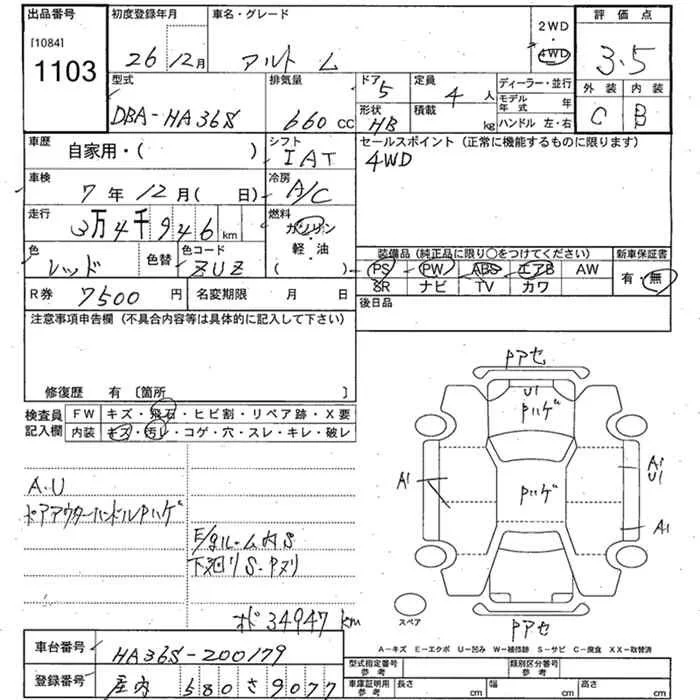 出品番号 初度登録年月 車名・グレード 評価点
[1084]
1103
26年12月 アルト L 2WD 4WD 3.5
型式 排気量 ドア 定員 ディーラー・並行 外装 内装
DBA-HA36S 660 CC 5 4人 モデル年式 年 C B
形状 HB 積載 kg ハンドル 左・右
車歴 自家用・( ) シフト IAT セールスポイント (正常に機能するものに限ります)
4WD
車検 7年12月( 日) 冷房 A/C
走行 3万4千946km 燃料 ガソリン・軽・油 ( )
色 レッド 色替 色コード ZUZ
装備品 (純正品に限り○をつけてください) 新車保証書
PS PW ABS エアB AW 有・無
SR ナビ TV カワ
R券 7500円 名変期限 月 日 後日品
注意事項申告欄 (不具合内容等は具体的に記入して下さい)
修復歴 有 〔箇所 〕
検査員記入欄 FW キズ・飛石・ヒビ割・リペア跡・X要
内装 キズ・汚レ・コゲ・穴・スレ・キレ・破レ
Pアセ
U1
Pハゲ
A1
Pハゲ
A1
U1
A1
Pアセ
スペア
A.U
ドアアウターハンドルPハゲ
E/gルーム内S
下廻りS・Pヌリ
オド 34947 km
A-キズ E-エクボ U-凹み W-補修跡 S-サビ C-腐食 XX-取替済
車台番号 HA36S-200179
型式指定番号 参考 類別区分番号 参考
登録番号 庄内 580 さ 9077
車庫証明用 参考 長さ cm 幅 cm 高さ cm